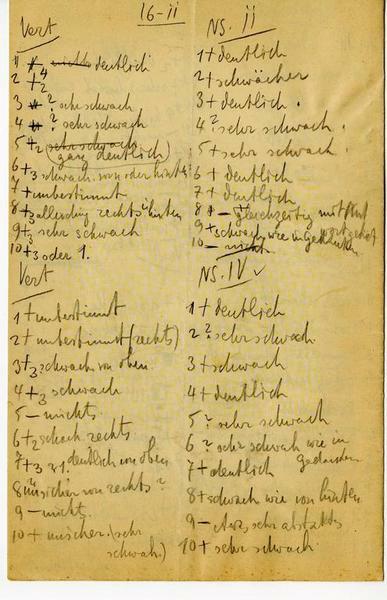 16-II
Vert
1) deutlich
2 +4/2
3 ? sehr schwach
4 ? sehr schwach
5 +2 sehr schwach
(ganz deutlich)
6 +3 schwach. von oder hinten
7 + unbestimmt
8 +3 allerding rechts hinten
9 +3 sehr schwach
10 +3 oder 1.
Vert
1 + unbestimmt
2 + unbestimmt (rechts)
3 +3 schwach von oben
4 +3 schwach
5 – nichts
6 +2 schwach rechts
7 +3 deutlich von oben
8 ? unsicher von rechts?
9 – nichts.
10 + (sehr
schwach.)
NS. II
1 + deutlich
2 + schwächer
3 + deutlich.
4 ? sehr schwach.
5 + sehr schwach.
6 + deutlich
7 + deutlich
8 gleichzeitig mit
9 + schwach, wie in Gedanken
10 – nicht
NS. IV
1 + deutlich
2 ? sehr schwach.
3 + schwach
4 + deutlich
5 ? sehr schwach
6 ? sehr schwach wie in
Gedanken
7 + deutlich
8 + schwach wie von hinten
9 – sehr
10 + sehr schwach.